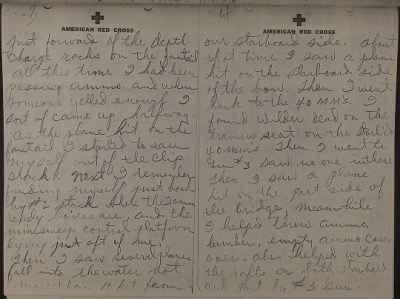 AMERICAN RED CROSS
just forward of the depth
charge racks on the fantail
all this time I had been
passing ammo and when
someone yelled enough I
sort of came up halfway
as the plane hit on the
fantail I started to save
myself out of the clip
shack. Next I remember
finding myself just back
by #2 stack where the 20mm
ready boxes are, and the
minesweep control platform
lying just aft of me.
Then I saw several planes
fall into the water
to hit from
18
AMERICAN RED CROSS
our starboard side. About
that time I saw a plane
hit on the starboard side
of the bow. Then I went
back to the 40 MM's. I
found Wilder dead on the
trainers seat on the
40 mms. Then I went to
Gun #3 saw no one in there
then I saw a plane
hit on the port side of
the bridge. Meanwhile
I helped throw ammo,
lumber, empty ammo cases
over. also helped with
the rafts on both starboard
and port by #3 Gun.